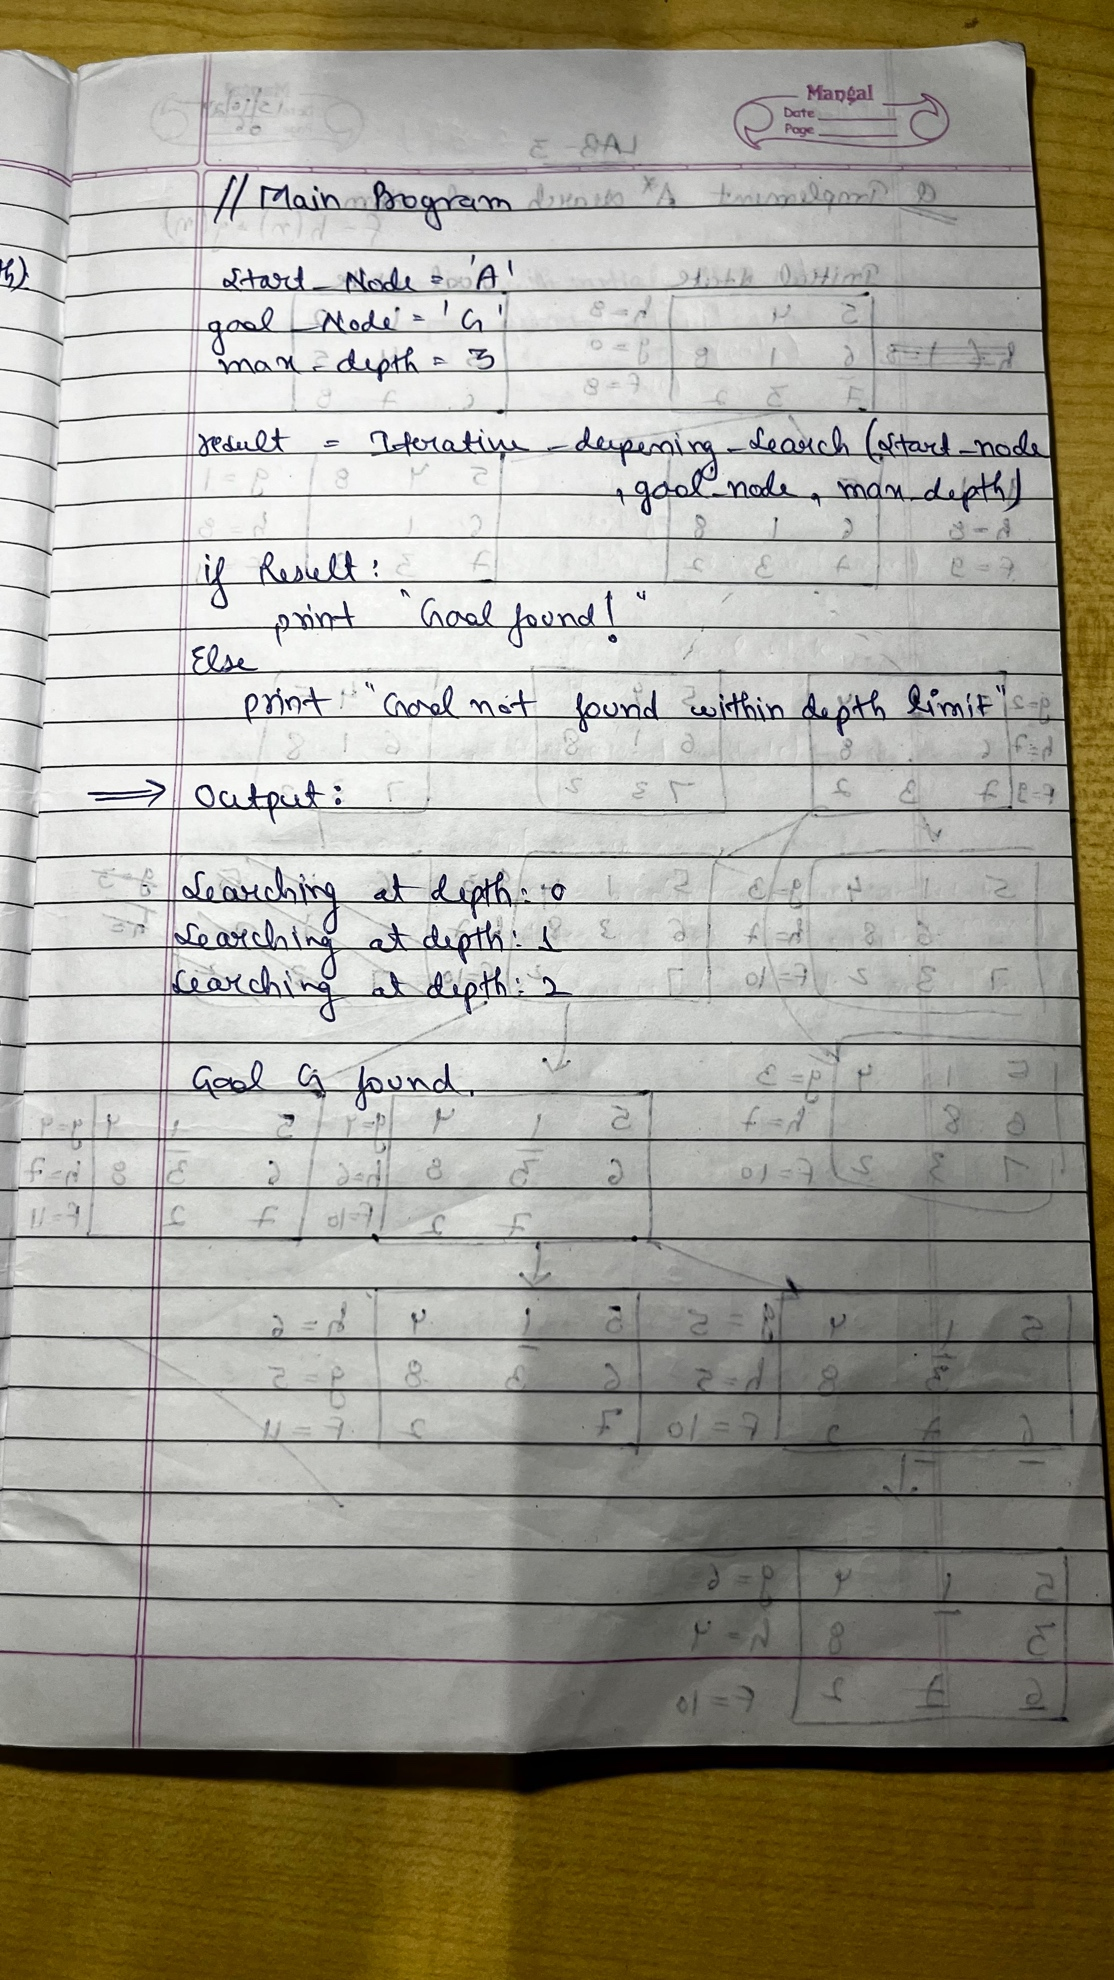 Mangal
Date
Page
// Main Program
Start_Node = 'A'
goal_Node = 'G'
max_depth = 3
result = Iterative_deepening_Search (Start_node
, goal_node, max_depth)
if Result:
print "Goal found!"
Else
print "Goal not found within depth limit"
⟹ Output:
Searching at depth: 0
Searching at depth: 1
Searching at depth: 2
Goal G found.